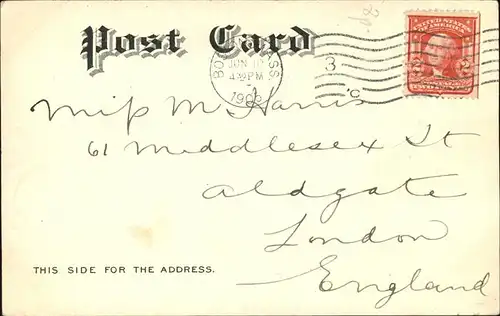 Post Card
UNITED STATES
OF AMERICA
2 2
TWO CENTS
BOSTON, MASS.
JUN 10
430 PM
3
C
Miss M Harris
61 Middlesex St
Aldgate
London
England
THIS SIDE FOR THE ADDRESS.